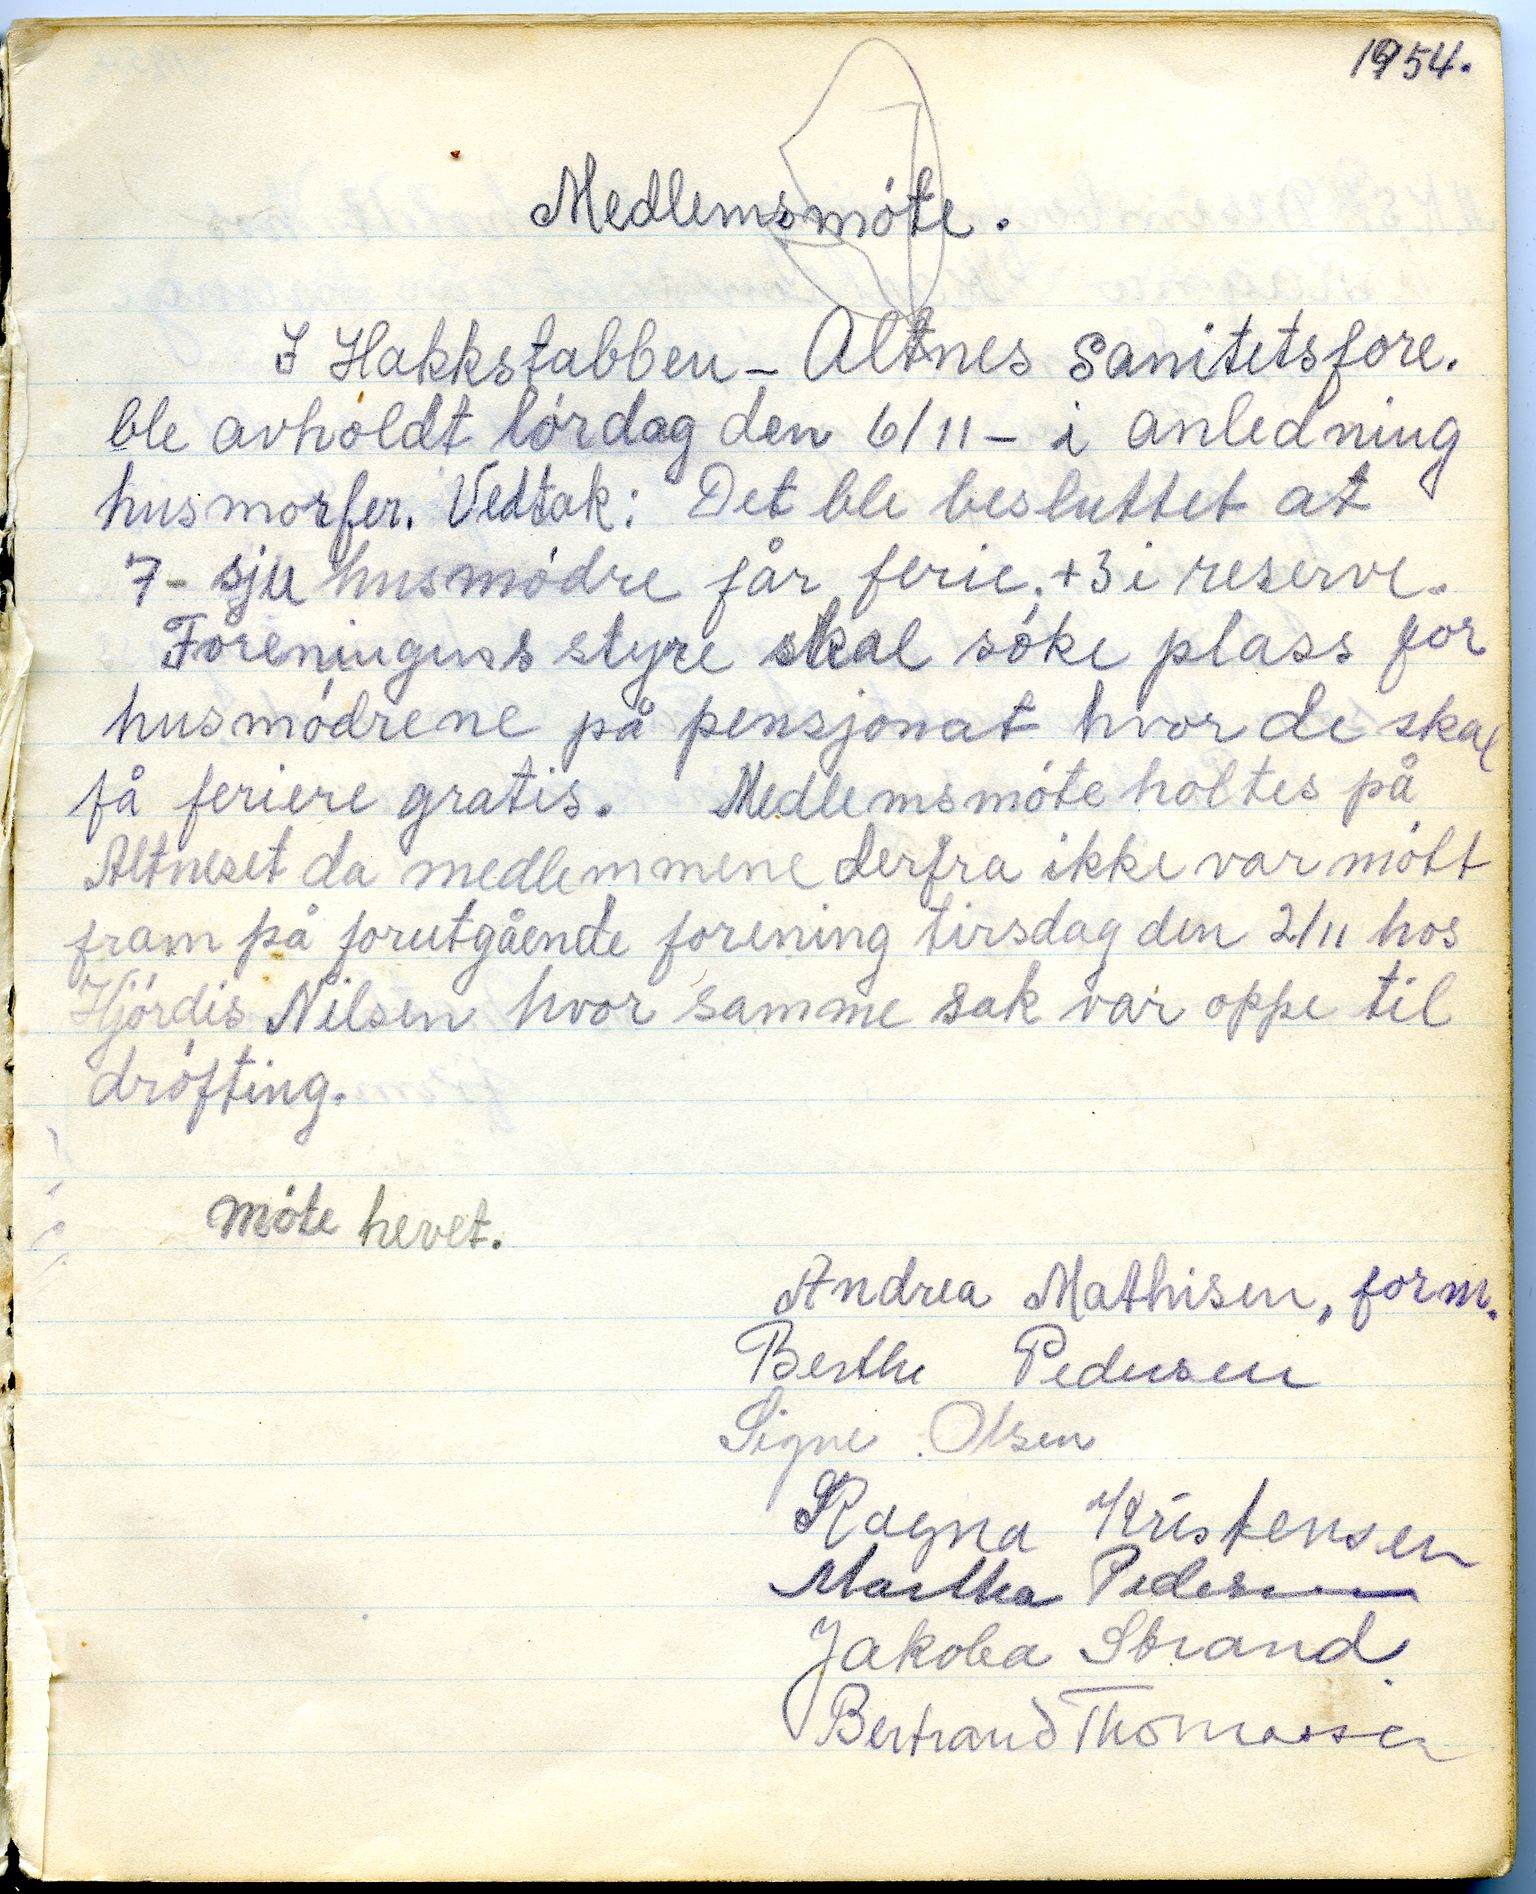 1954.
Medlemsmóte.
I Hakkstabben - Altnes Sanitetsfore.
ble avholdt lórdag den 6/11 - i anledning
husmorfer. Vedtak: Det ble besluttet at
7 - sju husmódre får ferie. +3 i reserve.
Foreningens styre skal sóke plass for
husmódrene på pensjonat hvor de skal
få feriere gratis. Medlemsmóte holtes på
Altneset da medlemmene derfra ikke var mótt
fram på forutgående forening tirsdag den 2/11 hos
Hjórdis Nilsen hvor samme sak var oppe til
drófting.
móte hevet.
Andrea Mathisen, form.
Berthe Pedersen
Signe Olsen
Ragna Kristensen
Martha Pedersen
Jakoba Strand
Bertrand Thomassen